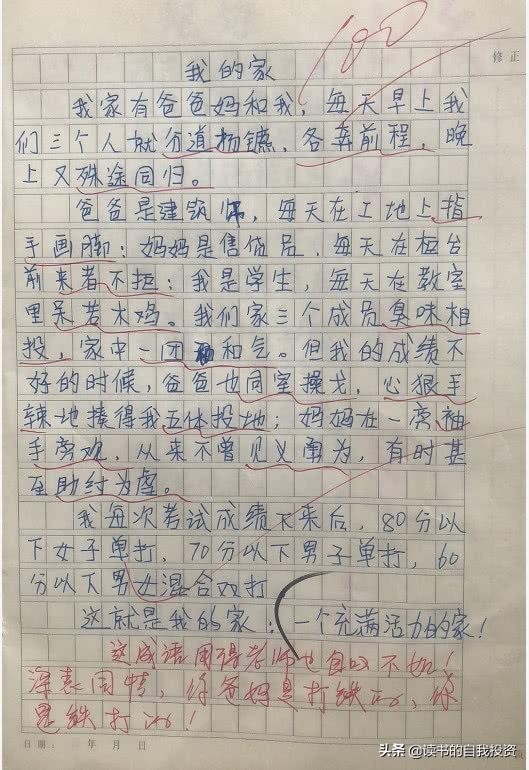 100
修正
我的家
我家有爸爸妈和我，每天早上我
们三个人就分道扬镳，各奔前程，晚
上又殊途同归。
爸爸是建筑师，每天在工地上指
手画脚；妈妈是售货员，每天在柜台
前来者不拒；我是学生，每天在教室
里呆若木鸡。我们家三个成员臭味相
投，家中一团和气。但我的成绩不
好的时候，爸爸也同室操戈，心狠手
辣地揍得我五体投地；妈妈在一旁袖
手旁观，从来不曾见义勇为，有时甚
至助纣为虐。
我每次考试成绩下来后，80分以
下女子单打，70分以下男子单打，60
分以下男女混合双打
这就是我的家：一个充满活力的家！
这成语用得老师也自叹不如！
深表同情，你爸妈是打铁的，你
是铁打的！
日期： 年 月 日
头条 @读书的自我投资